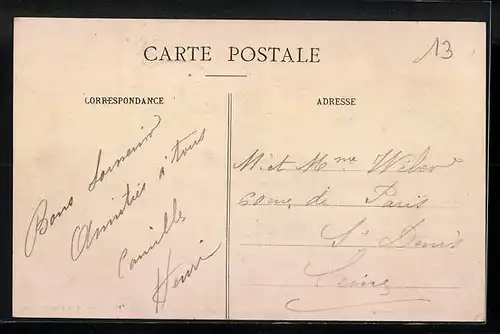 CARTE POSTALE
13
CORRESPONDANCE
Bons Souvenirs
Amitiés à tous
Camille
Henri
ADRESSE
M. et Mme
de Paris
St Denis
Seine